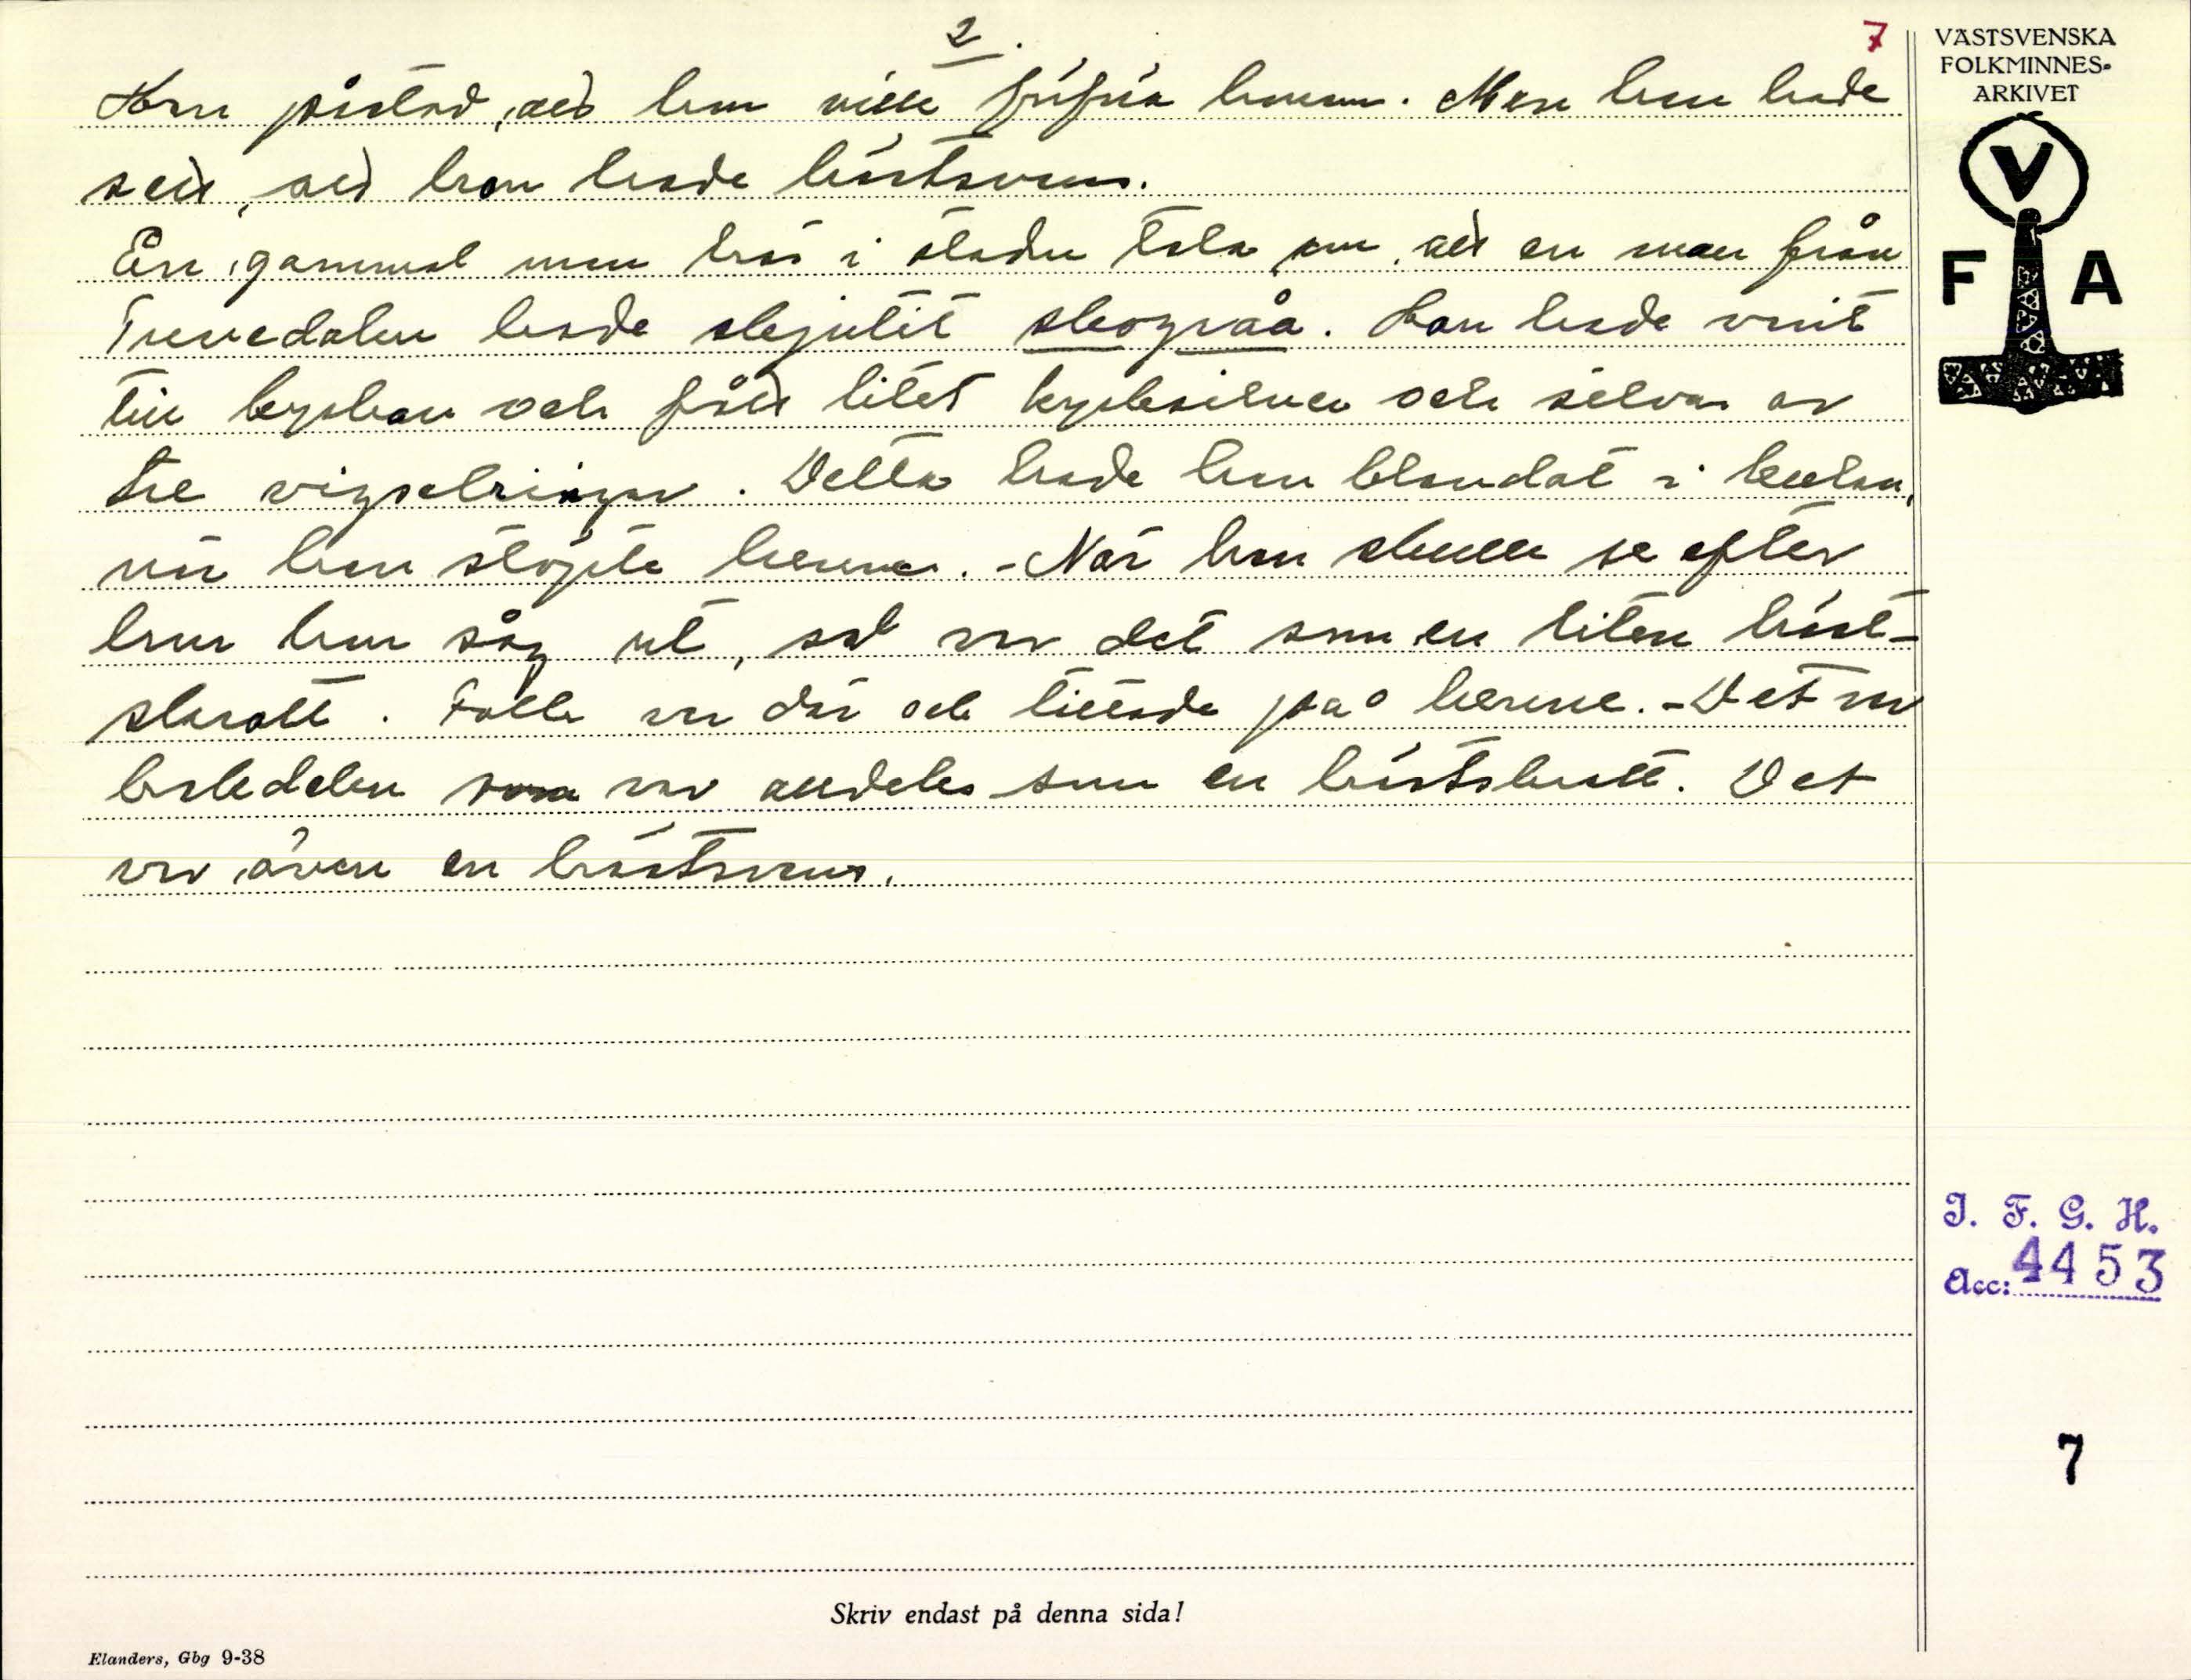 2.
7
Hon påstod, att han ville förföra henne. Men han hade
sett, att hon hade hästsvans.
En gammal man här i staden tala om, att en man från
Tivedalen hade skjutit skogråa. Han hade varit
till kyrkan och fått litet kyrksilver och silver av
tre vigselringar. Detta hade han blandat i kulan,
när han stöpte henne. - När han skulle se efter
hur hon såg ut, så var det som en liten häst-
skrott. Folk var där och tittade på henne. - Det var
bakdelen var alldeles som en hästskrott. Det
var även en hästsvans.
VÄSTSVENSKA
FOLKMINNES-
ARKIVET
V
F A
I. F. G. H.
Acc: 4453
7
Skriv endast på denna sida!
Elanders, Gbg 9-38